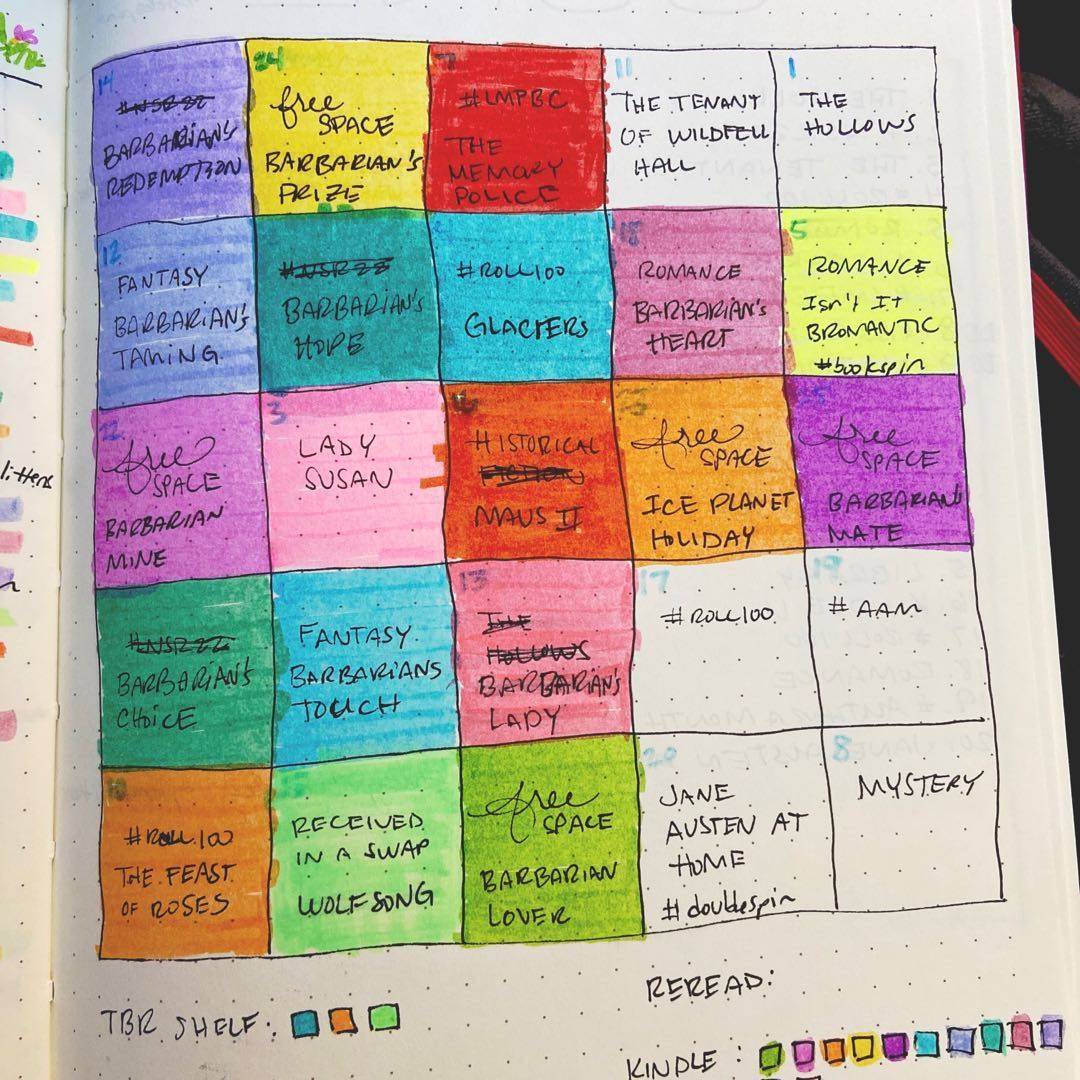 14
#NSR22
BARBARIAN'S
REDEMPTION
24
free
SPACE
BARBARIAN'S
PRIZE
7
#LMPBC
THE
MEMORY
POLICE
11
THE TENANT
OF WILDFELL
HALL
1
THE
HOLLOWS
12
FANTASY
BARBARIAN'S
TAMING
#NSR22
BARBARIAN'S
HOPE
#ROLL100
GLACIERS
18
ROMANCE
BARBARIAN'S
HEART
5
ROMANCE
Isn't It
BROMANTIC
#bookspin
22
free
SPACE
BARBARIAN
MINE
3
LADY
SUSAN
16
HISTORICAL
FICTION
MAUS II
23
free
SPACE
ICE PLANET
HOLIDAY
25
free
SPACE
BARBARIAN'S
MATE
#NSR22
BARBARIAN'S
CHOICE
FANTASY
BARBARIANS
TOUCH
13
THE
HOLLOWS
BARBARIAN'S
LADY
17
#ROLL100
19
#AAM
10
#ROLL100
THE FEAST
OF ROSES
RECEIVED
IN A SWAP
WOLFSONG
free
SPACE
BARBARIAN
LOVER
20
JANE
AUSTEN AT
HOME
#doublespin
8
MYSTERY
TBR SHELF:
REREAD:
KINDLE: